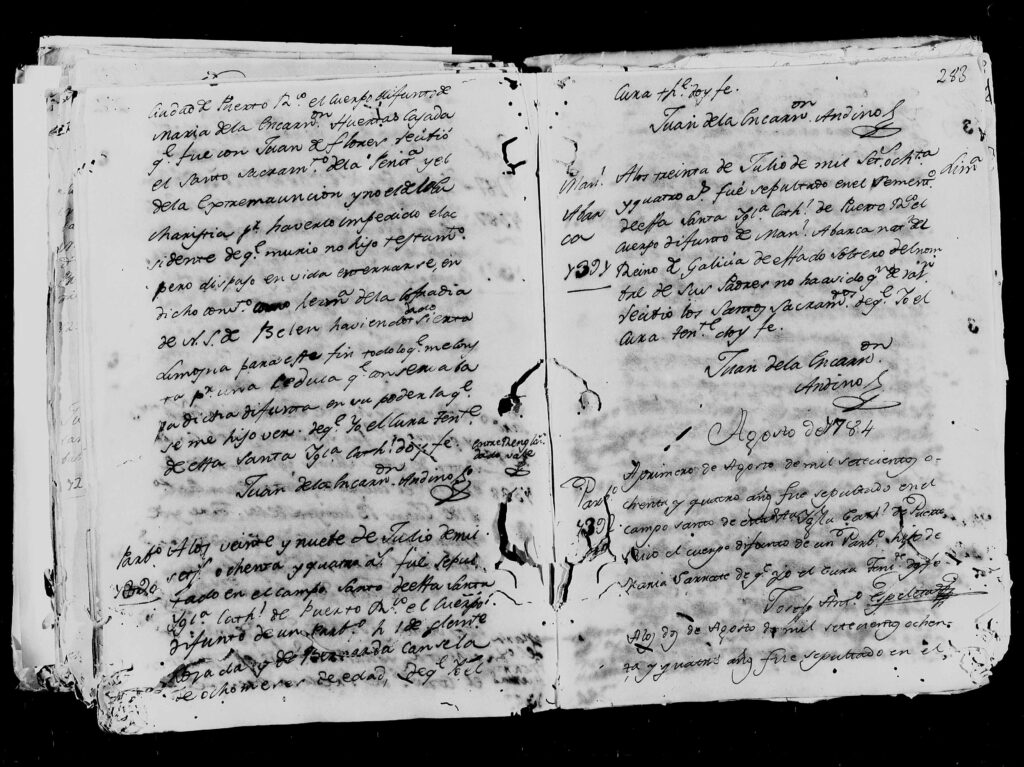 Ciudad de Puerto Rº el Cuerpo difunto de
Maria dela Encarnon Huertas Casada
qe fue con Juan de Flores recivió
el Santo Sacramto dela Penita y el
dela Extremauncion y no el dela Eu
charistia pr haverlo impedido el ac
sidente de qe murio no hijo testamto
pero dispuso en vida enterrarse, en
dicho convto como hermª dela Cofradia
de N. S. de Belen haviendo dado sierta
Limosna para este fin todo lo qe me cons
ta pr una Cedula qe conservaba
dicha difunta en su poder la qe
se me hijo ver. de qe Yo el Cura Tente
de esta Santa Ygla Cathl doy fe.
entre Renglns
dado vale
Juan dela Encarnon Andino
Parbo Alos veinte y nueve de Julio de mil
sets ochenta y quatro as fue sepul
tado en el campo Santo de esta Santa
Ygla Cathl de Puerto Rº el Cuerpo
difunto de un Parbo h l de
y de Bernarda Candela
de ocho meses de edad, de qe Yo el
283
Cura the doy fe.
Juan dela Encarnon Andino
Manl
Abar
ca
Limª
Alos treinta de Julio de mil sets ochta
y quatro as fue sepultado en el Sementº
de esta Santa Ygla Cathl de Puerto Rº el
Cuerpo difunto de Manl Abarca natl del
Reino de Galicia de estado soltero del nom
tal de sus Padres no ha avido qn de ra
recivio los Santos Sacramtos de qe Yo el
Cura Tente doy fe.
Juan dela Encarnon
Andino
Agosto de 1784
Parbo
A primero de Agosto de mil setecientos o-
chenta y quatro años fue sepultado en el
campo santo de esta Sta Ygla Cathl de Puerto
Rico el cuerpo difunto de un Parbo hijo de
Maria de qe yo el Cura Tente doy fe
Espeleta
Alos dos de Agosto de mil setecientos ochen
ta y quatro años fue sepultado en el